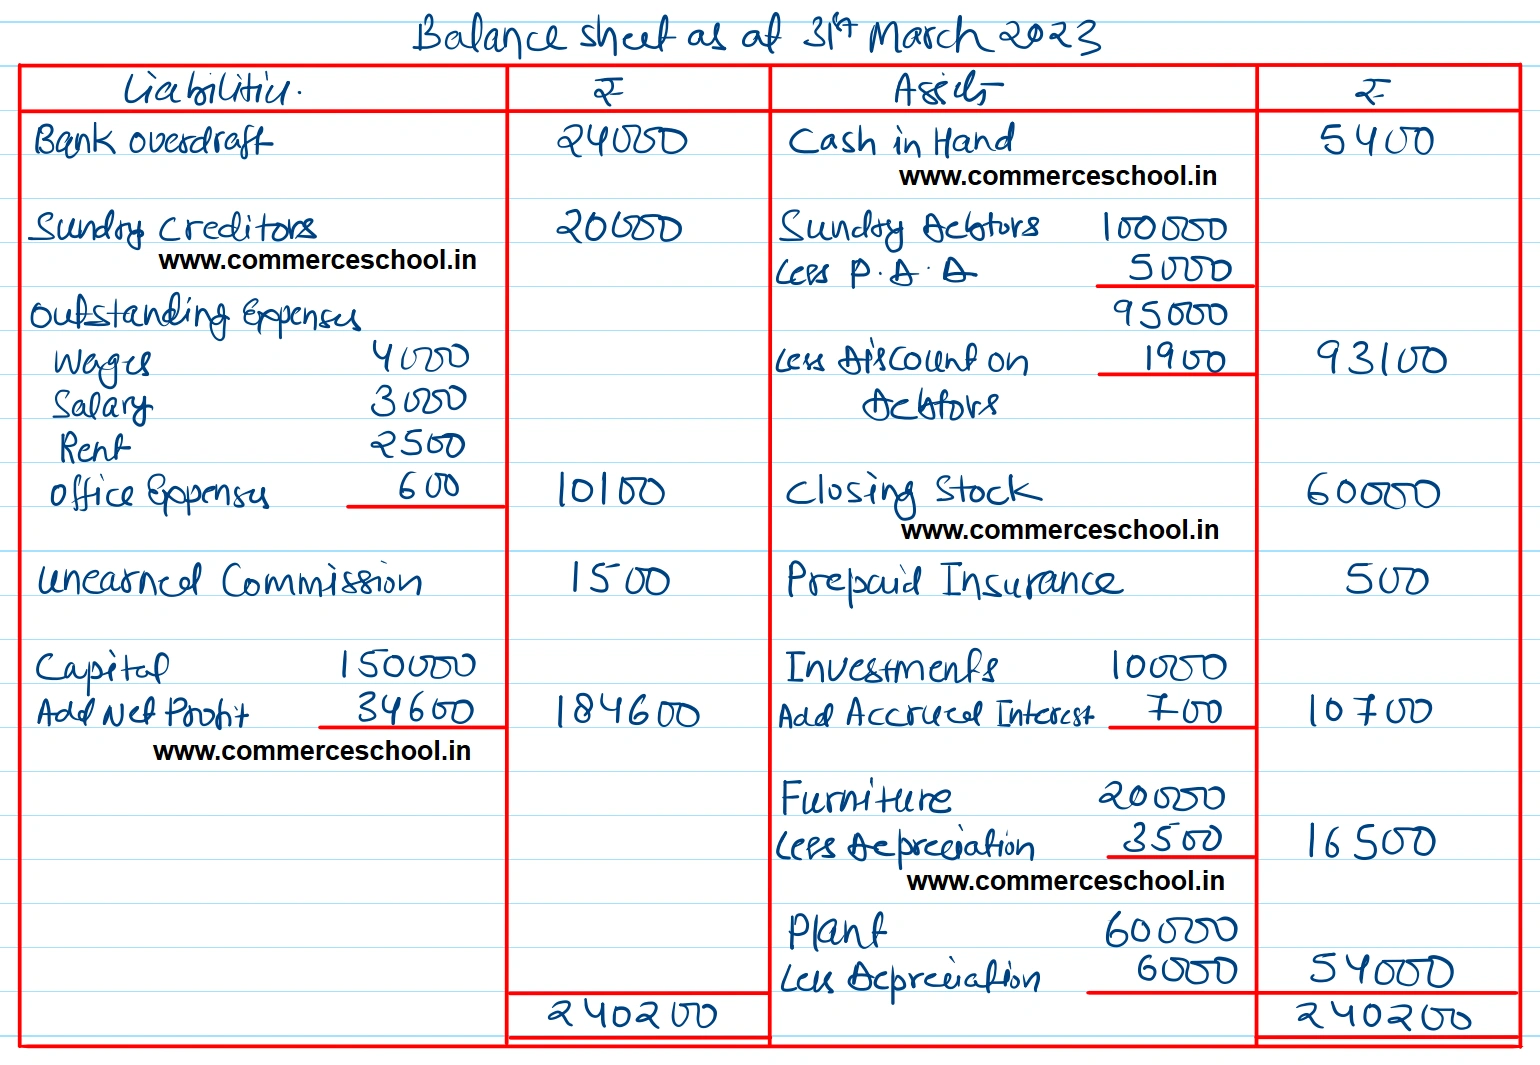 Balance sheet as at 31st March 2023
Liabilities. ₹ Assets ₹
Bank overdraft 24000 Cash in Hand 5400
www.commerceschool.in
Sundry Creditors 20000 Sundry Debtors 100000
www.commerceschool.in Less P.D.D 5000
Outstanding Expenses 95000
Wages 4000 Less Discount on 1900 93100
Salary 3000 Debtors
Rent 2500
Office Expenses 600 10100 Closing Stock 60000
www.commerceschool.in
Unearned Commission 1500 Prepaid Insurance 500
Capital 150000 Investments 10000
Add Net Profit 34600 184600 Add Accrued Interest 700 10700
www.commerceschool.in
Furniture 20000
Less Depreciation 3500 16500
www.commerceschool.in
Plant 60000
Less Depreciation 6000 54000
240200 240200